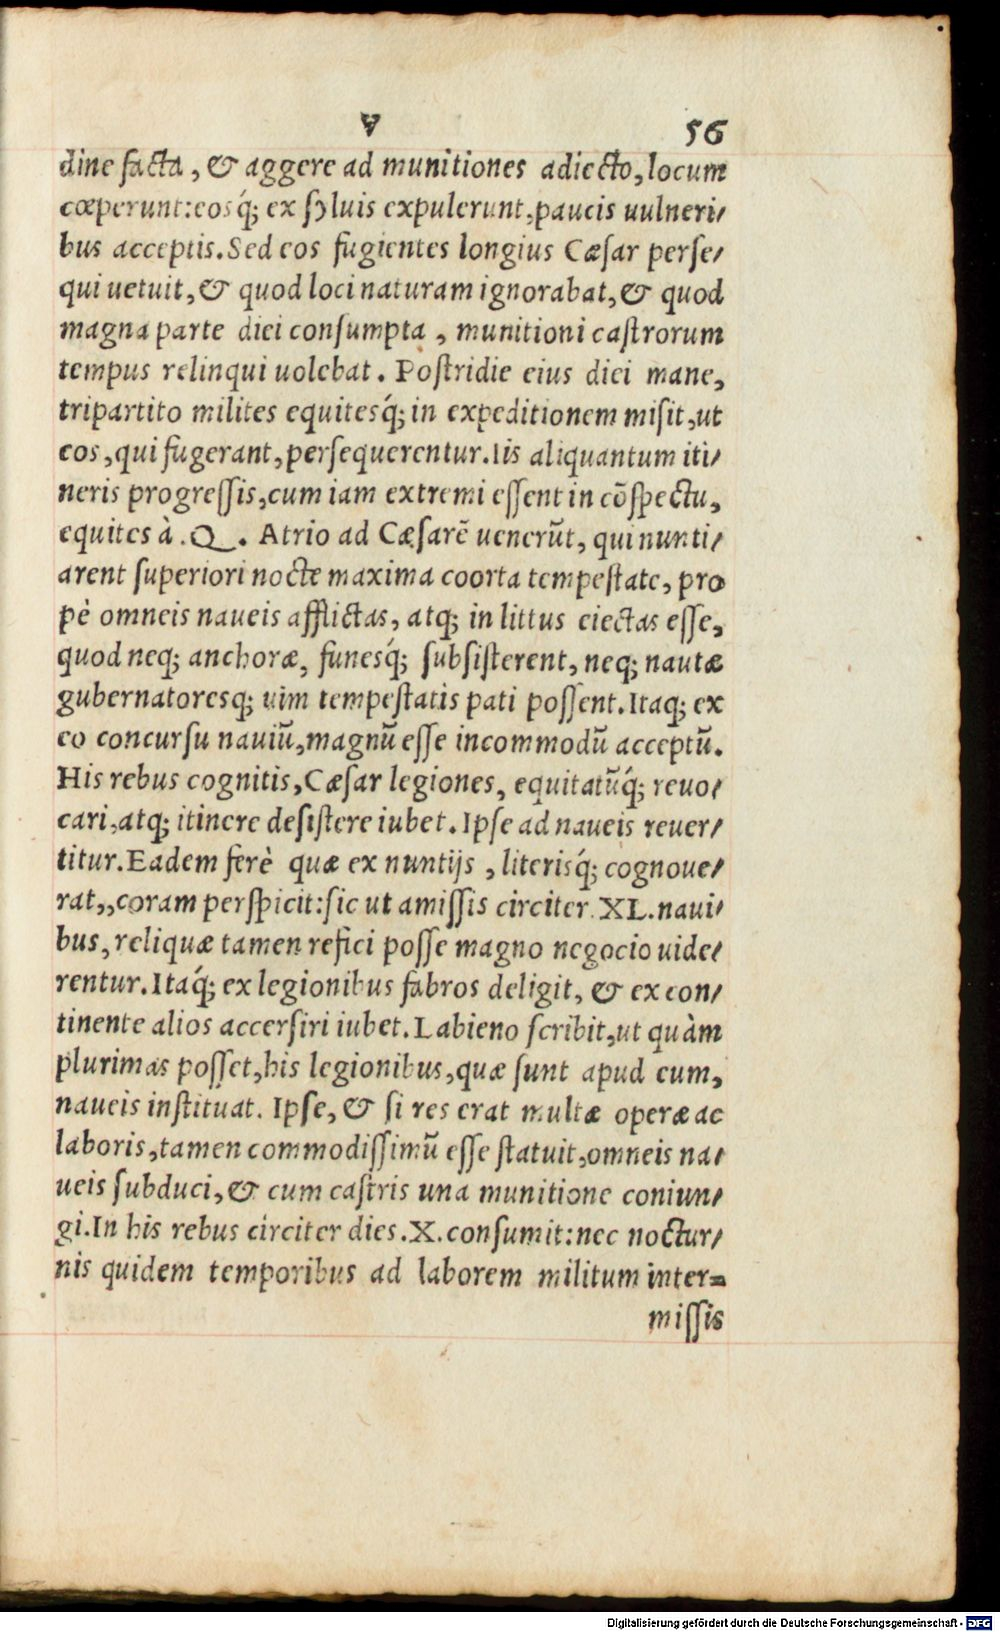 V 56
dine facta, & aggere ad munitiones adiecto, locum
cœperunt: eosq́; ex syluis expulerunt, paucis uulneri-
bus acceptis. Sed eos fugientes longius Cæsar perse-
qui uetuit, & quod loci naturam ignorabat, & quod
magna parte diei consumpta, munitioni castrorum
tempus relinqui uolebat. Postridie eius diei mane,
tripartito milites equitesq́; in expeditionem misit, ut
eos, qui fugerant, persequerentur. Iis aliquantum iti-
neris progressis, cum iam extremi essent in cōspectu,
equites à .Q. Atrio ad Cæsarē uenerūt, qui nunti-
arent superiori nocte maxima coorta tempestate, pro
pè omneis naueis afflictas, atq; in littus eiectas esse,
quod neq; anchoræ, funesq́; subsisterent, neq; nautæ
gubernatoresq; uim tempestatis pati possent. Itaq; ex
eo concursu nauiū, magnū esse incommodū acceptū.
His rebus cognitis, Cæsar legiones, equitatūq́; reuo-
cari, atq; itinere desistere iubet. Ipse ad naueis reuer-
titur. Eadem ferè quæ ex nuntijs, literisq́; cognoue-
rat,, coram perspicit: sic ut amissis circiter. XL. naui-
bus, reliquæ tamen refici posse magno negocio uide-
rentur. Itaq́; ex legionibus fabros deligit, & ex con-
tinente alios accersiri iubet. Labieno scribit, ut quàm
plurimas posset, his legionibus, quæ sunt apud eum,
naueis instituat. Ipse, & si res erat multæ operæ ac
laboris, tamen commodissimū esse statuit, omneis na-
ueis subduci, & cum castris una munitione coniun-
gi. In his rebus circiter dies. X. consumit: nec noctur-
nis quidem temporibus ad laborem militum inter-
missis
Digitalisierung gefördert durch die Deutsche Forschungsgemeinschaft - DFG